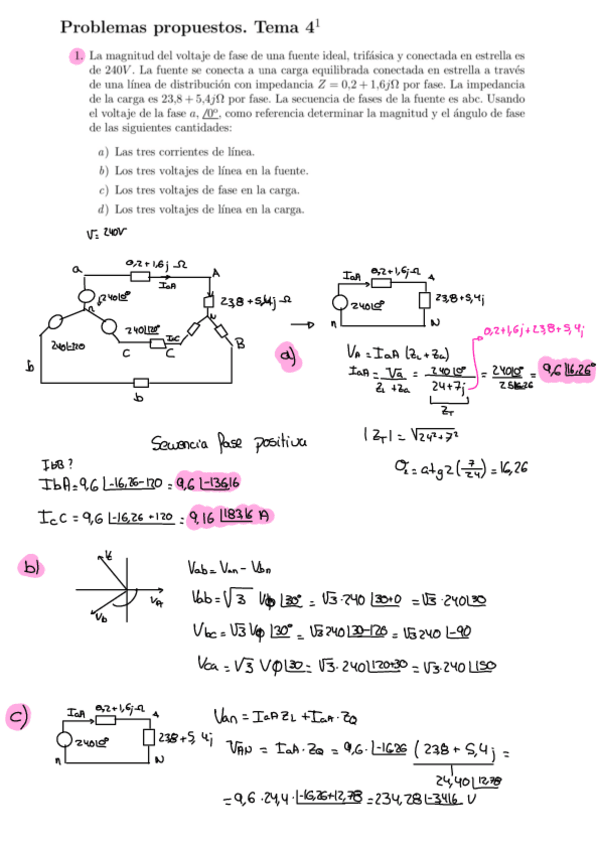 Problemas propuestos. Tema 4¹
1. La magnitud del voltaje de fase de una fuente ideal, trifásica y conectada en estrella es
de 240V. La fuente se conecta a una carga equilibrada conectada en estrella a través
de una línea de distribución con impedancia Z = 0,2 + 1,6jΩ por fase. La impedancia
de la carga es 23,8 + 5,4jΩ por fase. La secuencia de fases de la fuente es abc. Usando
el voltaje de la fase a, /0º, como referencia determinar la magnitud y el ángulo de fase
de las siguientes cantidades:
a) Las tres corrientes de línea.
b) Los tres voltajes de línea en la fuente.
c) Los tres voltajes de fase en la carga.
d) Los tres voltajes de línea en la carga.
V= 240V
a
0,2+1,6j Ω
IaA
A
240∠0°
n
23,8+5,4j Ω
N
240∠120
240∠-120
IcC
C
C
B
b
b
IaA
0,2+1,6jΩ
A
240∠0°
23,8+5,4j
n
N
a)
0,2+1,6j+23,8+5,4j
VA = IaA (ZL+Za)
IaA = Va / (ZL+Za) = 240∠0° / (24+7j) = 240∠0° / 25∠16,26 = 9,6∠16,26°
ZT
|ZT| = √24²+7²
= atg2(7/24) = 16,26
Secuencia fase positiva
IbB?
IbA = 9,6∠-16,26-120 = 9,6∠-136,16
IcC = 9,6∠-16,26+120 = 9,16∠183,16 A
b)
Vc
VA
Vb
Vab = Van - Vbn
Vbb = √3 Vφ∠30° = √3·240∠30+0 = √3·240∠30
Vbc = √3 Vφ∠30° = √3 240∠30-120 = √3 240∠-90
Vca = √3 Vφ∠30 = √3·240∠120+30 = √3·240∠150
c)
IaA
0,2+1,6jΩ
A
240∠0°
23,8+5,4j
n
N
Van = IaA ZL + IaA·ZQ
VAN = IaA·ZQ = 9,6·∠-16,26 (23,8+5,4j =
24,40∠12,78
= 9,6·24,4·∠-16,26+12,78 = 234,28∠-3,416 V